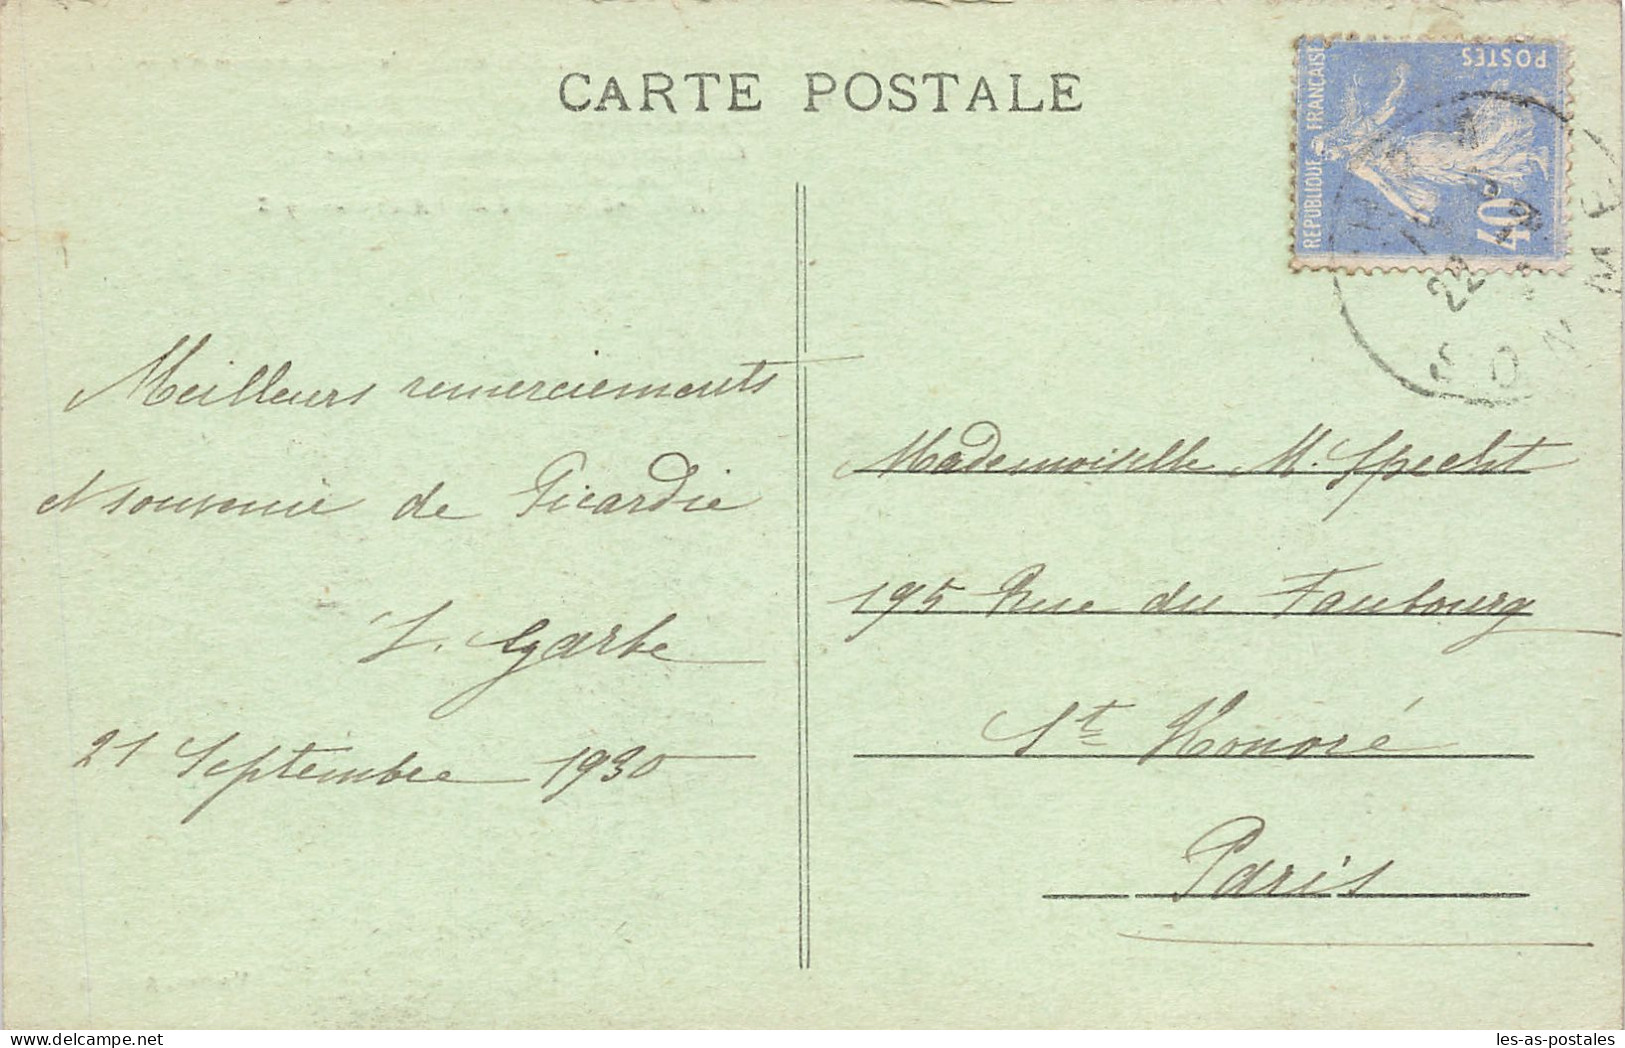 CARTE POSTALE
REPUBLIQUE FRANÇAISE
POSTES
40c
22
SOMME
Meilleurs remerciements
et souvenir de Picardie
Garbe
21 Septembre 1930
Mademoiselle M. Specht
195 Rue du Faubourg
St Honoré
Paris
les-as-postales